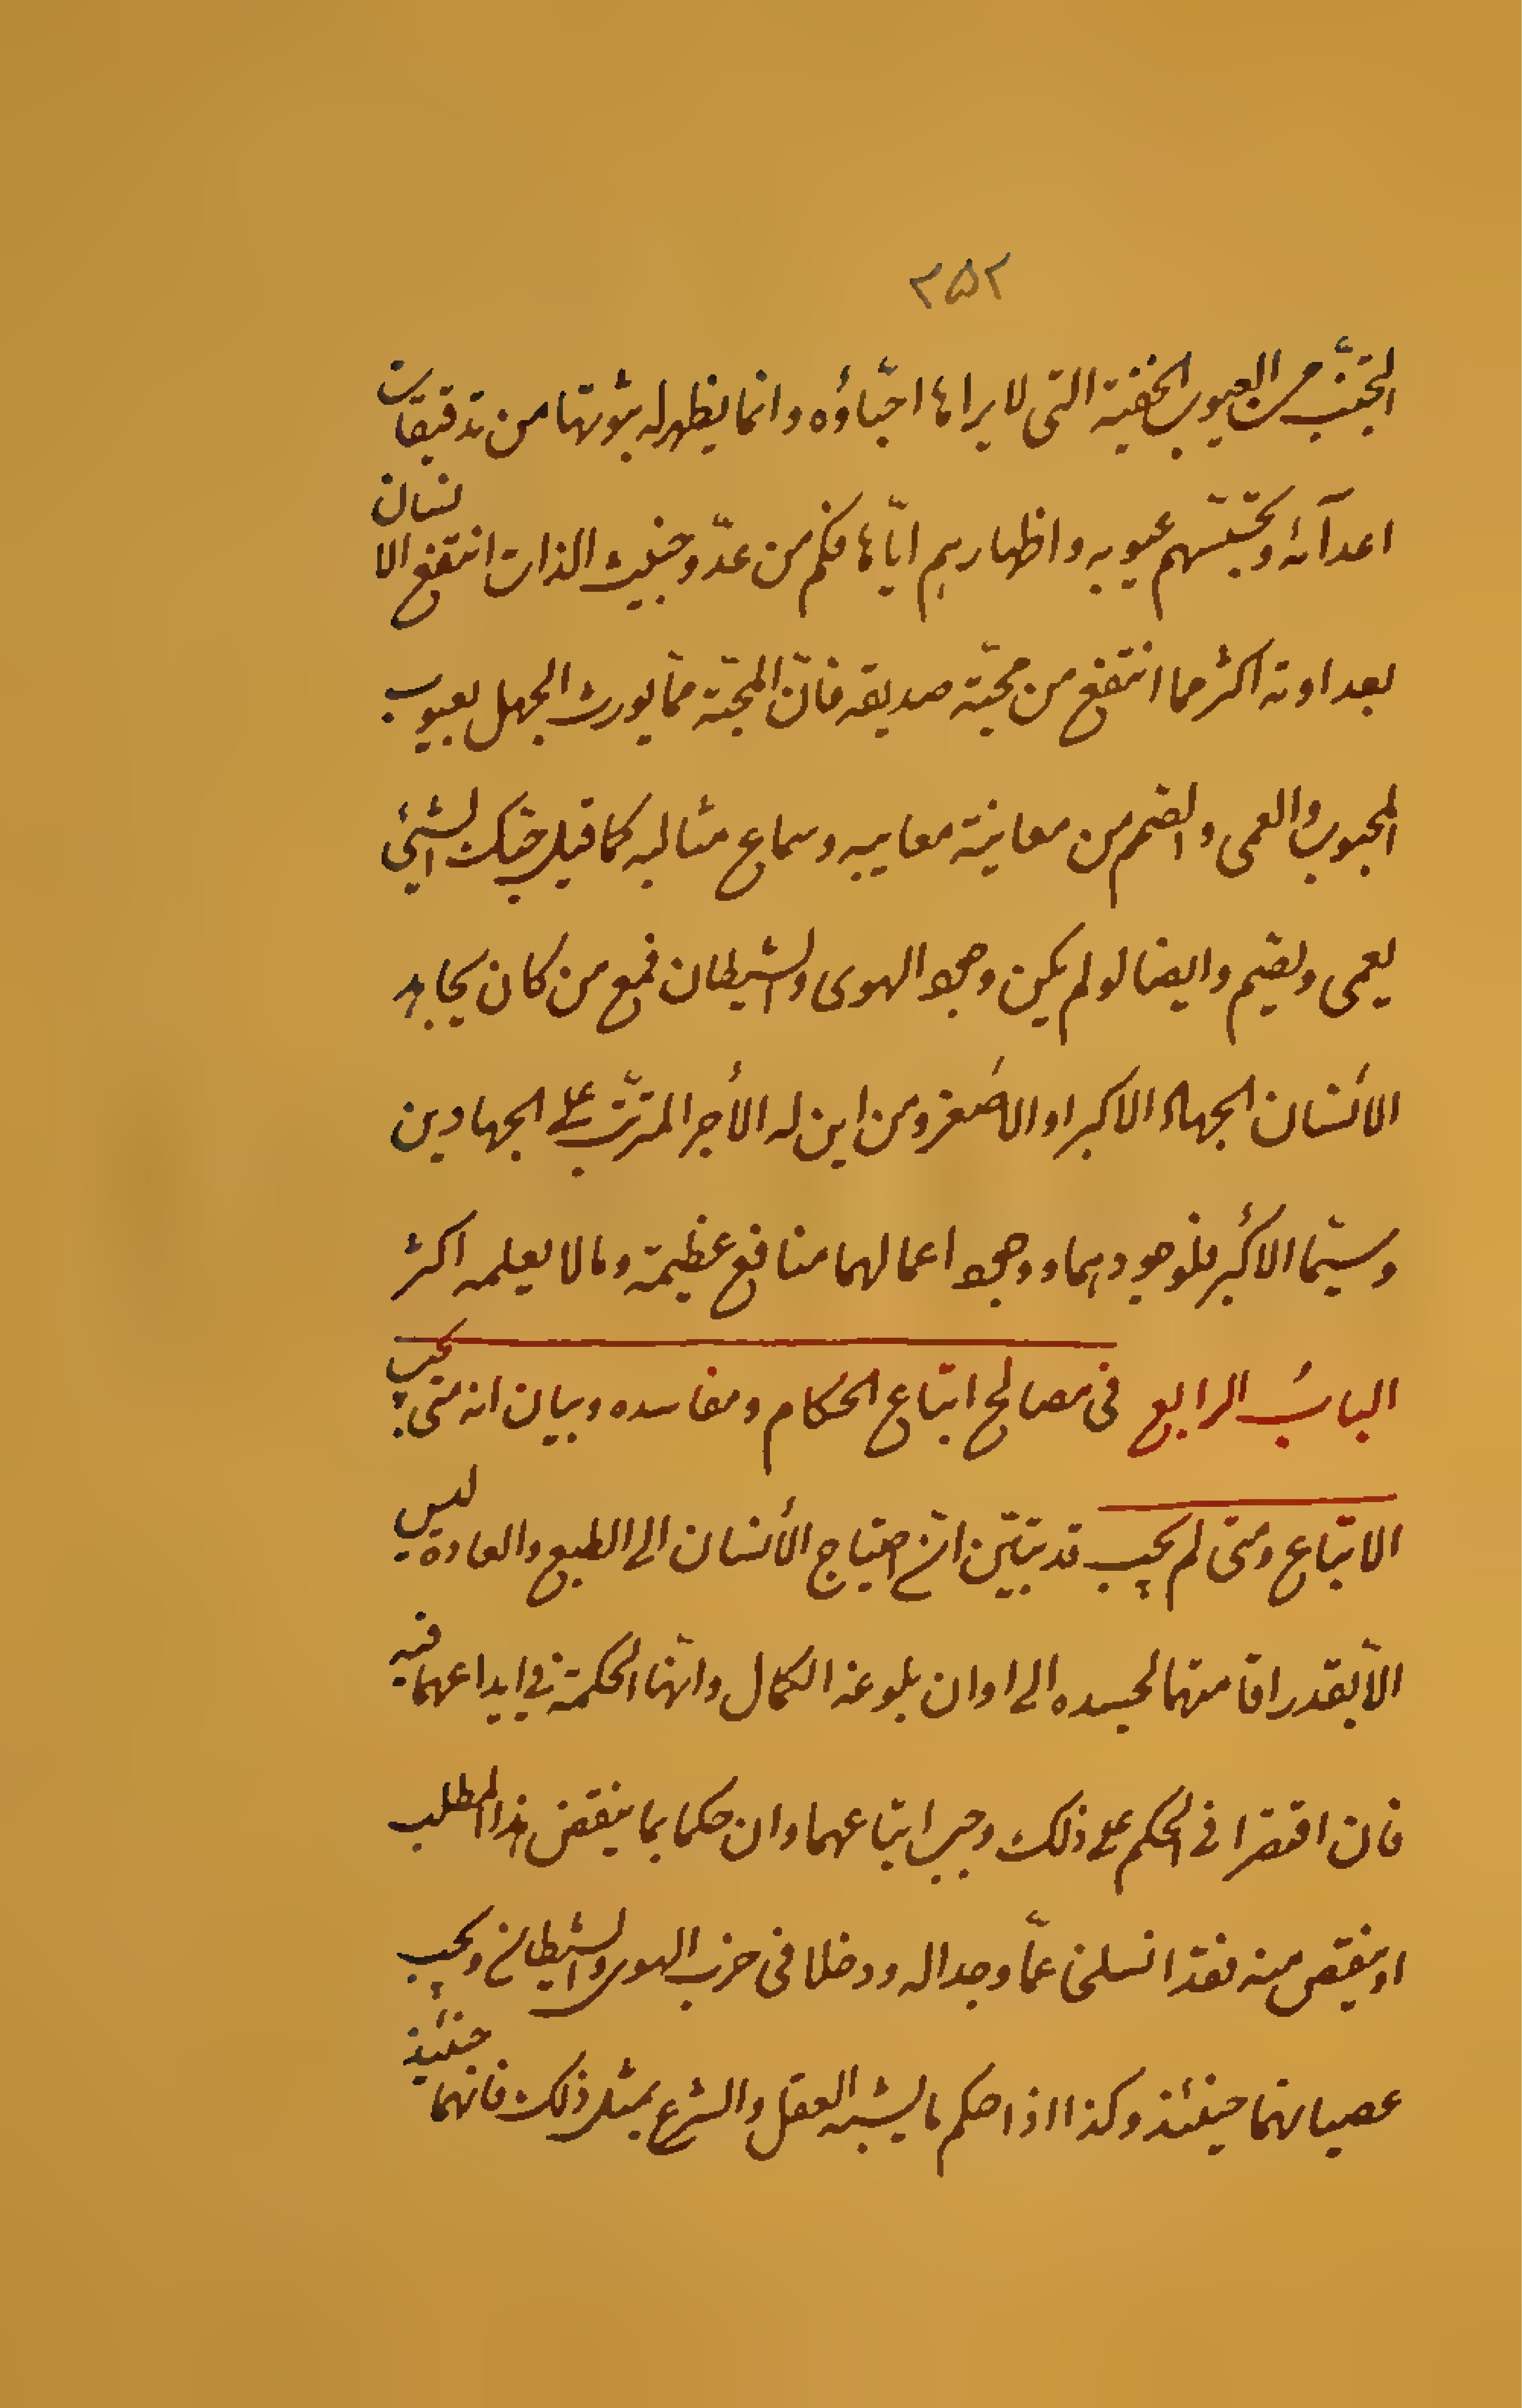 ٣٥٢
التجنّب من العيوب الخفية التى لا يراها احبّاؤه وانما يظهر له ثبوتها من تدقيقات
اعدآئه وتجسّسهم عيوبه واظهارهم ايّاها فكم من عدّو خبيث الذات انتفع الانسان
بعداوته اكثر مما انتفع من محبّة صديقه فانّ المحبّة ممّا يورث الجهل بعيوب
المحبوب والعمى والصّم من معاينة معايبه وسماع مثالبه كما قيل حبّك الشئ
يعمى ويصّم وايضا لو لم يكن وجود الهوى والشيطان فمع من كان يجاهد
الأنسان الجهاد الاكبر او الاصغر ومن اين له الأجر المترتّب على الجهادين
وسيّما الأكبر فلوجودهما ووجود اعمالهما منافع عظيمة وما لا يعلمه اكثر
الباب الرابع فى مصالح اتباع الحكام ومفاسده وبيان انه متى يجب
الاتباع ومتى لم يجب قد تبيّن انّ احتياج الأنسان الى الطبع والعادة ليس
الّا بقدر اقامتهما لجسده الى اوان بلوغه الكمال وانّها الحكمة فى ايداعهما فيه
فان اقتصرا فى الحكم على ذلك وجب اتباعهما وان حكما بما ينقض هذا المطلب
او ينقص منه فقد انسلخا عمّا وجدا له ودخلا فى حزب الهوى والشيطان ويجب
عصيانهما حينئذ وكذا اذا حكم ما يشبه العقل والشرع بمثل ذلك فانهما حينئذ